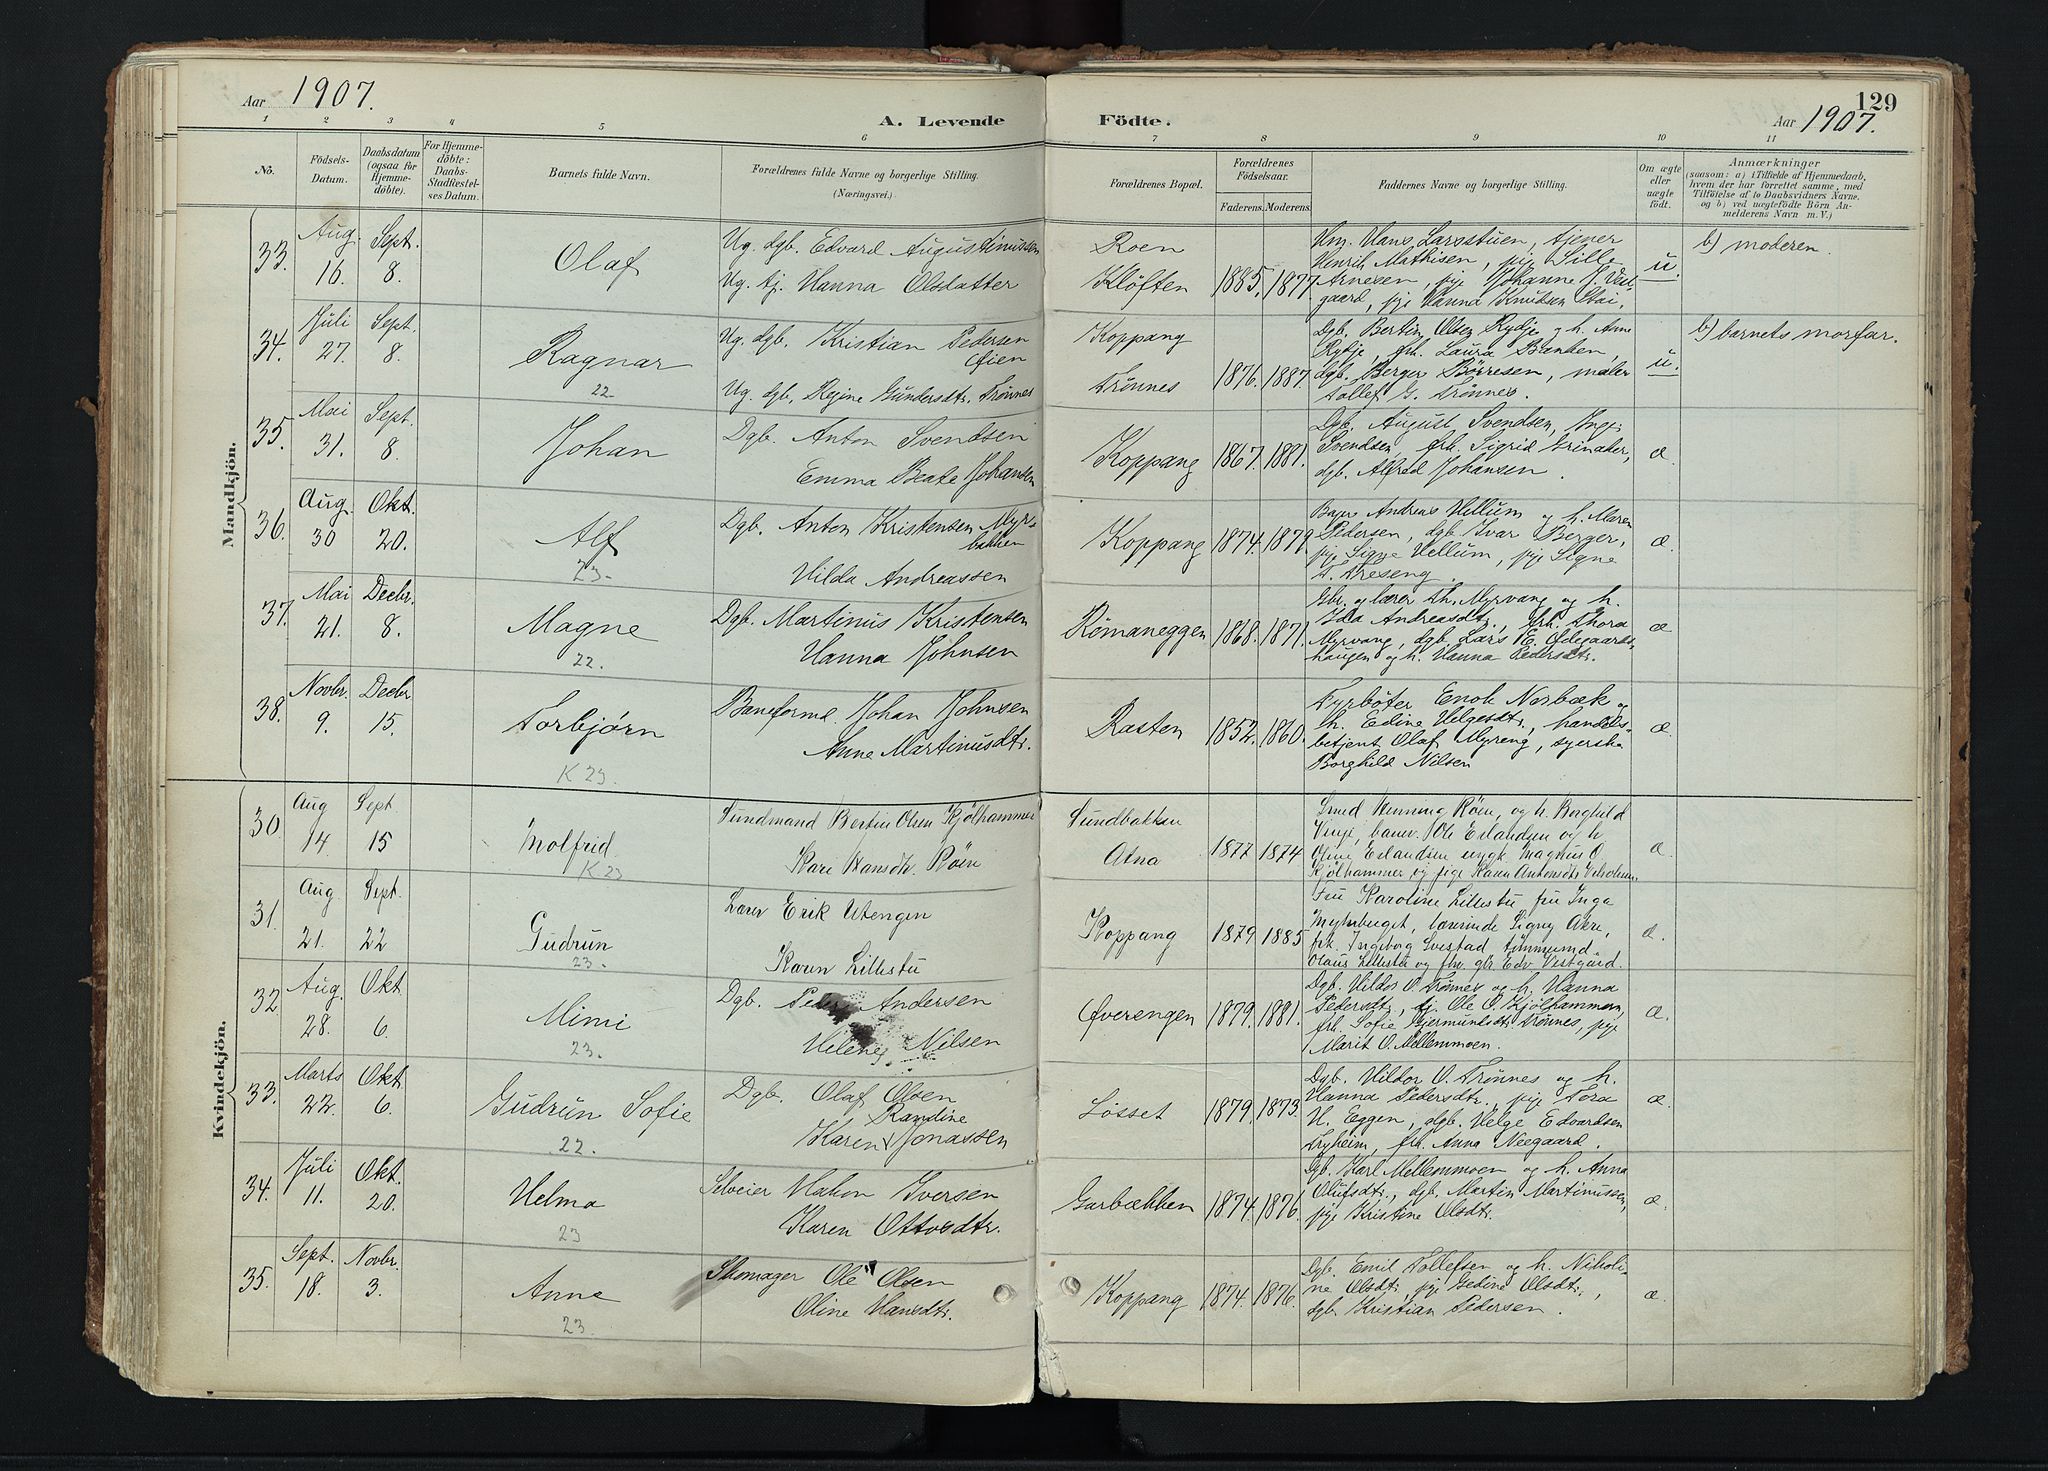 Aar 1907.
A. Levende Födte.
129
Aar 1907.
1 2 3 4 5 6 7 8 9 10 11
No.
Födsels-Datum.
Daabsdatum (ogsaa for Hjemmedöbte).
For Hjemmedöbte: Daabs-Stadfæstelses Datum.
Barnets fulde Navn.
Forældrenes fulde Navne og borgerlige Stilling. (Næringsvei.)
Forældrenes Bopæl.
Forældrenes Födselsaar.
Faderens. Moderens.
Faddernes Navne og borgerlige Stilling.
Om ægte eller uægte födt.
Anmærkninger
(saasom: a) i Tilfælde af Hjemmedaab, hvem der har forrettet samme, med Tilföielse af to Daabsvidners Navne, og b) ved uægtefödte Börn Anmelderens Navn m. V.)
Mandkjön.
33. Aug. 16. Sept. 8. Olaf
Ug. dgb. Edvard Augustinussen
Ug. tj. Hanna Olsdatter
Roen
Kløften 1885. 1877
Hm. Hans Larsstuen, tjener
Henrik Mathisen, pige Sille
Arnesen, pige Johanne J. Vestgaard, pige Hanna Knutsen Stai,
u.
b) moderen.
34. Juli 27. Sept. 8. Ragnar
22
Ug. dgb. Kristian Pedersen Øien
Ug. dgb. Regine Gundersdtr. Trønnes
Koppang
Trønnes 1876. 1887.
Dgb. Bertin Olsen Rydje og h. Anne
Rydje, frk. Laura Bakken,
dgb. Berger Børresen, maler
Tollef G. Trønnes.
u.
b) barnets morfar.
35. Mai 31. Sept. 8. Johan
Dgb. Anton Svendsen
Emma Beate Johansen
Koppang 1867. 1881.
Dgb. August Svendsen, Inga
Svendsen, frk. Sigrid Grinaker,
dgb. Alfred Johansen.
æ.
36. Aug. 30 Okt. 20. Alf
23.
Dgb. Anton Kristensen Myrbakken
Hilda Andreassen
Koppang 1874. 1879.
Bager Andreas Hellum og h. Maren
Pedersen, dgb. Ivar Berger,
pige Signe Hellum, pige Signe
T. Treseng.
æ.
37. Mai 21. Decbr. 8. Magne
22.
Dgb. Martinus Kristensen
Hanna Johnsen
Rømaneggen 1868. 1871.
Gbr. og lærer Th. Myrvang og h.
Ida Andreasdtr., frk. Thora
Myrvang, dgb. Lars E. Ødegaardshaugen og h. Hanna Pedersdtr.
æ
38. Novbr. 9. Decbr 15. Torbjørn
K 23.
Baneformd. Johan Johnsen
Anne Martinusdtr.
Rasten 1852. 1860.
Fyrbøter Enok Norbæk og
h. Edine Helgesdtr., handelsbetjent Olaf Myreng, syerske
Borghild Nilsen
æ.
Kvindekjön.
30 Aug 14. Sept 15 Molfrid
K 23
Sundmand Bertin Olsen Kjølhammer
Kari Hansdtr. Røen
Sundbakken
Atna 1877 1874
Smed Henning Røen, og h. Borghild
Vinje, banev. Ole Erlandsen og h
Oline Erlandsen ungk. Magnus O
Kjølhammer og pige Karen Antonsdtr
æ.
31. Aug 21. Sept. 22 Gudrun
23.
Lærer Erik Utengen
Karen Lillestu
Koppang 1879 1885
Fru Karoline Lillestu fru Inga
lærerinde Signy Akre,
frk. Ingeborg Evestad tømmermd.
Olaus Lillestu og fhv. gbr Edv Vestgård.
æ.
32 Aug. 28. Okt 6. Mimi
23.
Dgb. Peder Andersen
Helene Nilsen
Øverengen 1879. 1881.
Dgb. Hildor O Trønnes og h. Hanna
Pedersdtr, tj. Ole O. Kjølhammen,
frk. Sofie Gjermundsdtr Trønnes, pige
Marit O. Mellemmoen.
æ.
33. Marts 22. Okt 6. Gudrun Sofie
22.
Dgb. Olaf Olsen
Randine
Karen Jonassen
Løsset 1879. 1873.
Dgb. Hildor O. Trønnes og h.
Hanna Pedersdtr., pige Tora
H. Eggen, dgb. Helge Edvardsen
Lyheim, frk. Anna Neegaard.
æ.
34. Juli 11. Okt. 20. Helma
23
Selveier Hakon Iversen
Karen Ottosdtr.
Garbækken 1874. 1876.
Dgb. Karl Mellemmoen og h. Anna
Olufsdtr., dgb. Martin Martinussen,
pige Kristine Olsdtr.
æ
35. Sept. 18. Novbr. 3. Anne
23.
Skomager Ole Olsen
Oline Hansdtr.
Koppang 1874. 1876.
Dgb. Emil Tollefsen og h. Nikoline Olsdtr, pige Gedine Olsdtr.,
dgb. Kristian Pedersen.
æ.